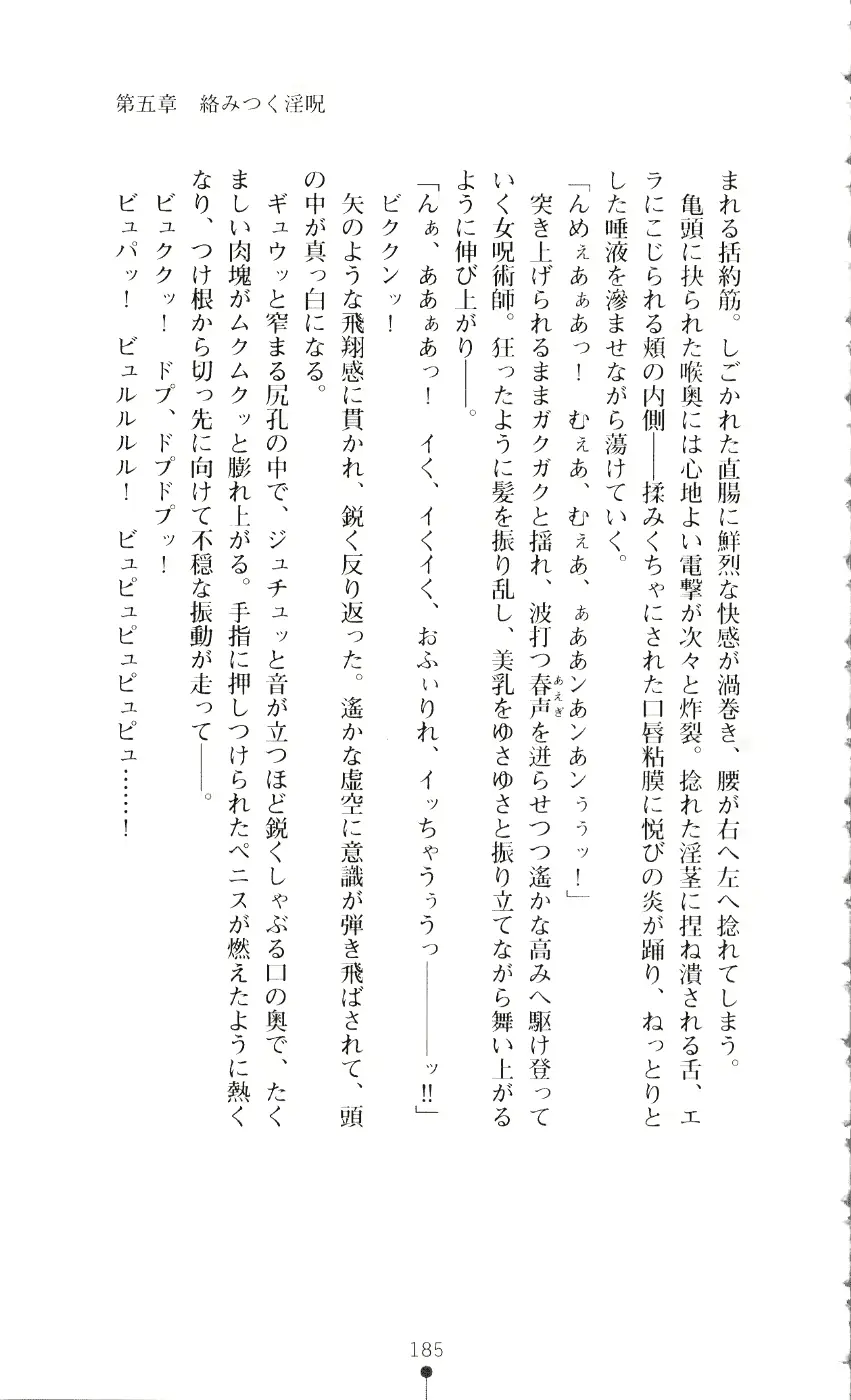 第五章　絡みつく淫呪
まれる括約筋。しごかれた直腸に鮮烈な快感が渦巻き、腰が右へ左へ捻れてしまう。
　亀頭に抉られた喉奥には心地よい電撃が次々と炸裂。捻れた淫茎に捏ね潰される舌、エ
ラにこじられる頬の内側――揉みくちゃにされた口唇粘膜に悦びの炎が踊り、ねっとりと
した唾液を滲ませながら蕩けていく。
「んめぇあぁあっ！　むぇあ、むぇあ、ぁああンあンあンぅぅッ！」
　突き上げられるままガクガクと揺れ、波打つ春声（あえぎ）を迸らせつつ遙かな高みへ駆け登って
いく女呪術師。狂ったように髪を振り乱し、美乳をゆさゆさと振り立てながら舞い上がる
ように伸び上がり――。
「んぁ、ああぁあっ！　イく、イくイく、おふぃりれ、イッちゃうぅうっ――――ッ!!」
　ビククンッ！
　矢のような飛翔感に貫かれ、鋭く反り返った。遙かな虚空に意識が弾き飛ばされて、頭
の中が真っ白になる。
　ギュウッと窄まる尻孔の中で、ジュチュッと音が立つほど鋭くしゃぶる口の奥で、たく
ましい肉塊がムクムクッと膨れ上がる。手指に押しつけられたペニスが燃えたように熱く
なり、つけ根から切っ先に向けて不穏な振動が走って――。
　ビュククッ！　ドプ、ドプドプッ！
　ビュパッ！　ビュルルルル！　ビュピュピュピュピュ……！
185